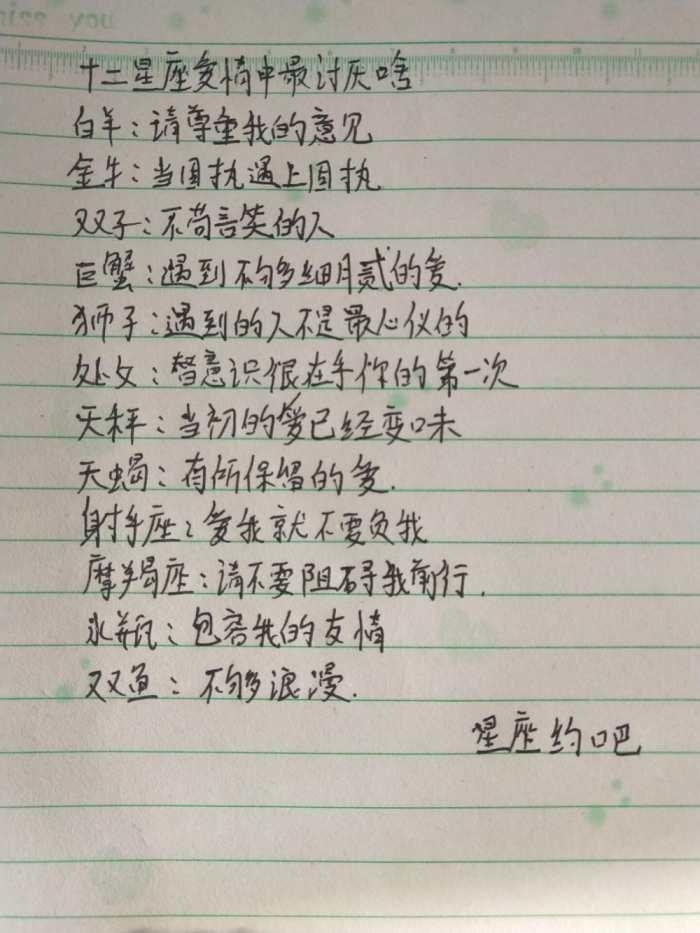 十二星座爱情中最讨厌啥
白羊：请尊重我的意见
金牛：当固执遇上固执
双子：不苟言笑的人
巨蟹：遇到不够细腻的爱.
狮子：遇到的人不是最心仪的
处女：潜意识很在乎你的第一次
天秤：当初的爱已经变味
天蝎：有所保留的爱.
射手座：爱我就不要负我
摩羯座：请不要阻碍我前行.
水瓶：包容我的友情
双鱼：不够浪漫.
星座约吧